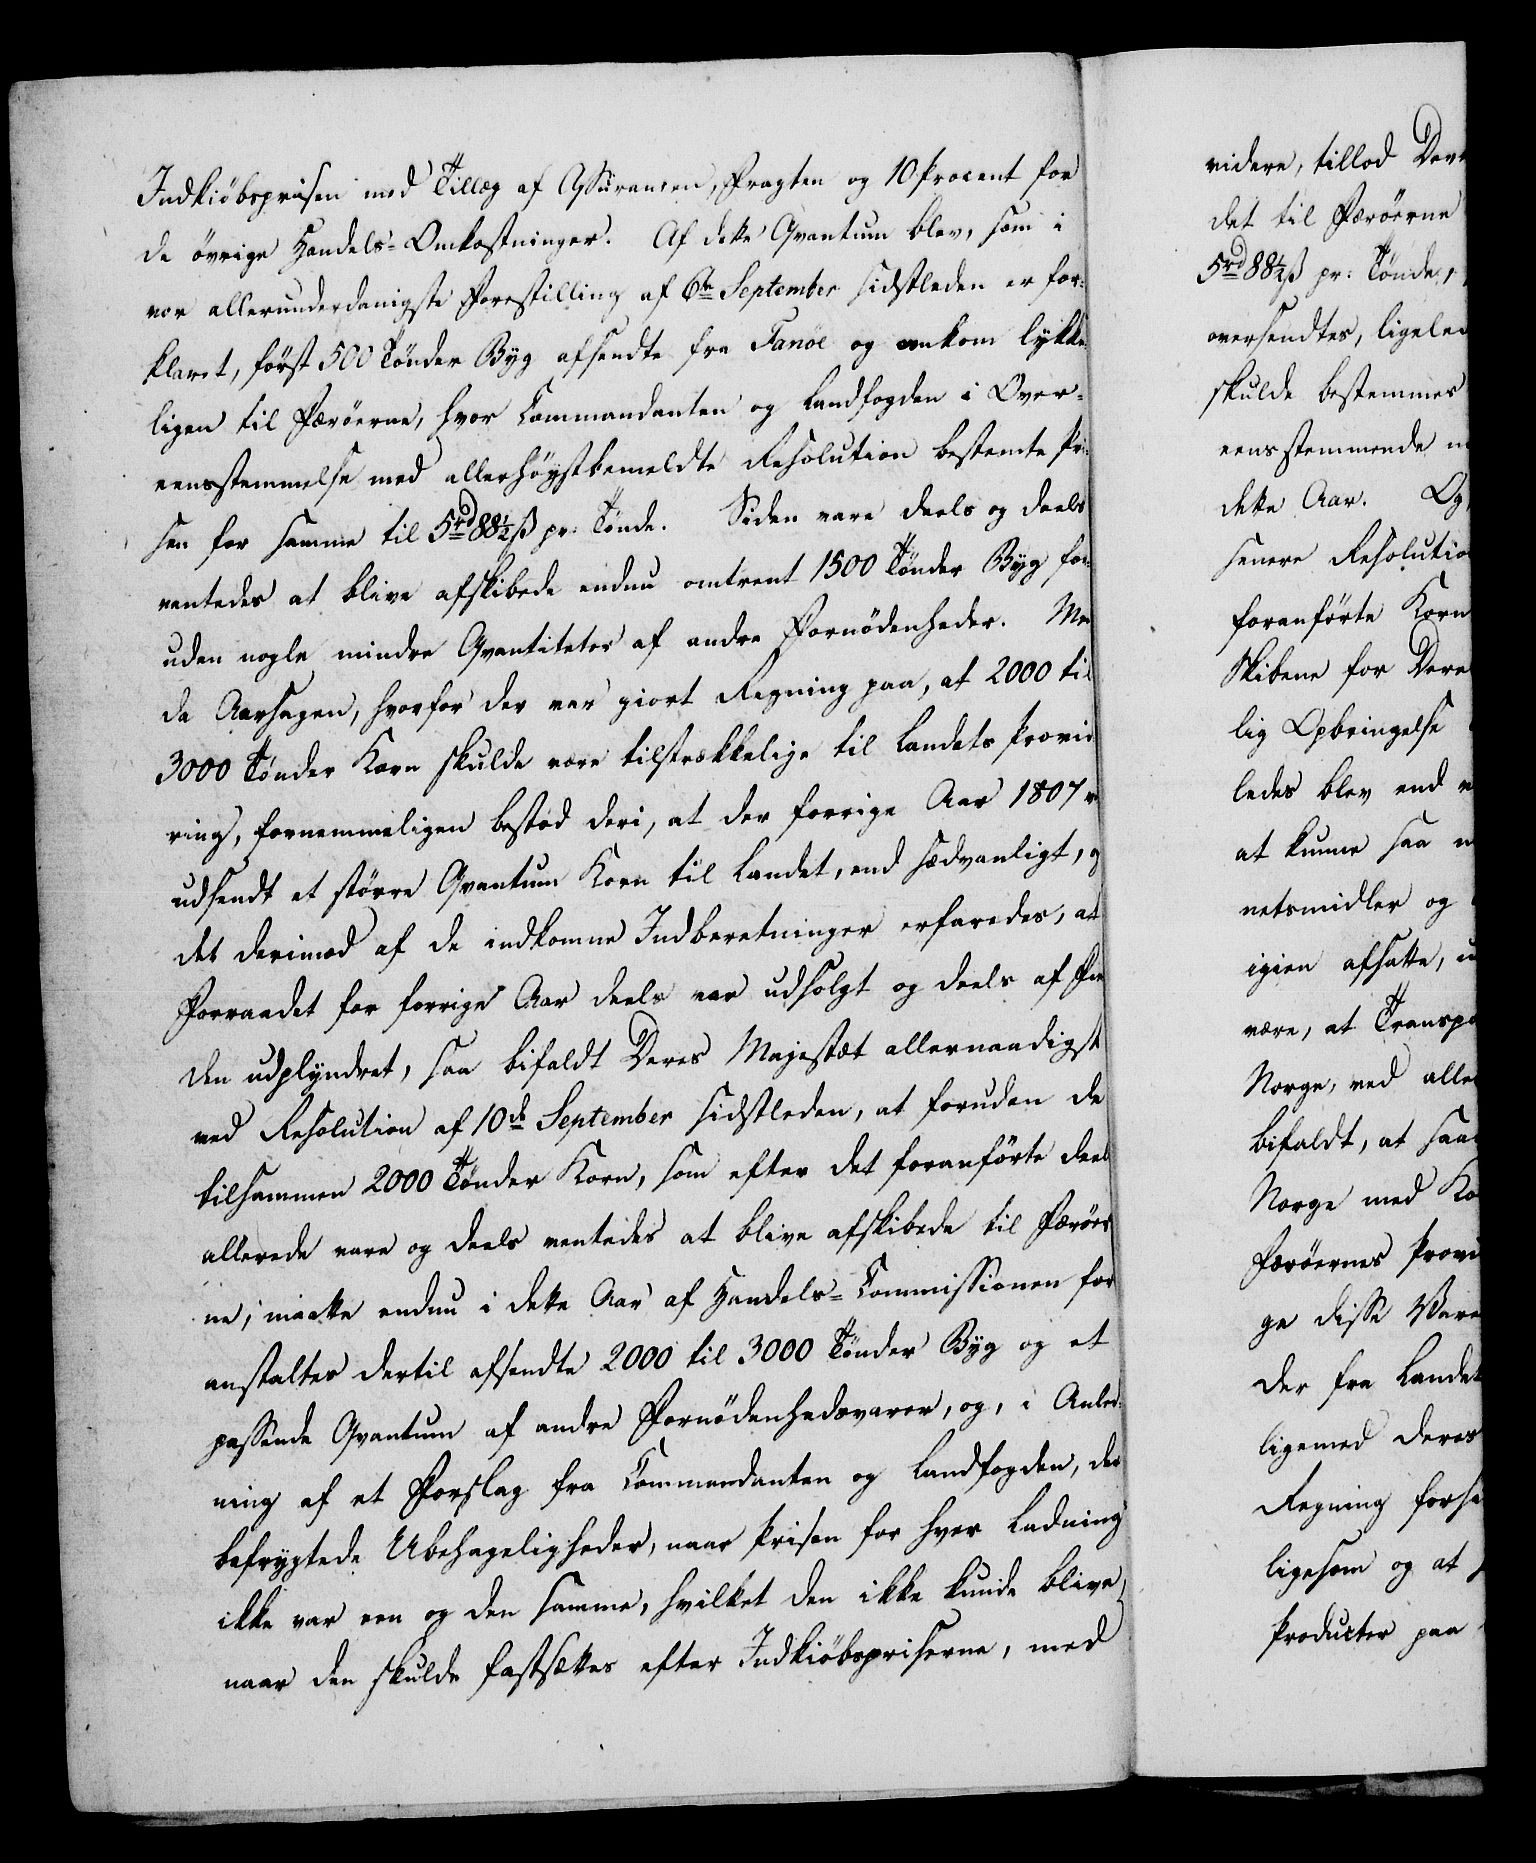 Indkiöbsprisen med Tillæg af Assurancen, Fragten og 10 Procent for
de övrige Handels-Omkostninger. Af dette Qvantum blev, som i
vor allerunderdanigste Forestilling af 6te September sidstleden er for-
klaret, först 500 Tönder Byg afsendte fra Fanöe og ankom lykke-
ligen til Færöerne, hvor Commandanten og Landfogden i Over-
eensstemmelse med allerhöystbemeldte Resolution bestemte Pri-
sen for samme til 5rd 88½ ß pr: Tönde. Siden vare deels og deels
ventedes at blive afskibede endnu omtrent 1500 Tönder Byg for-
uden nogle mindre Qvantiteter af andre Fornödenheder. Men
da Aarsagen, hvorfor der var giort Regning paa, at 2000 til
3000 Tönder Korn skulde være tilstrækkelige til Landets Provi
ring, fornemmeligen bestod deri, at der forrige Aar 1807 v
udsendt et större Qvantum Korn til Landet, end sædvanligt, o
det derimod af de indkomne Indberetninger erfaredes, at
Forraadet for forrige Aar deels var udsolgt og deels af Fien
den udplyndret, saa bifaldt Deres Majestæt allernaadigst
ved Resolution af 10de September sidstleden, at foruden de
tilsammen 2000 Tönder Korn, som efter det foranförte deels
allerede vare og deels ventedes at blive afskibede til Færöer
ne, maatte endnu i dette Aar af Handels-Commissionen for
anstaltes dertil afsendte 2000 til 3000 Tönder Byg og et
passende Qvantum af andre Fornödenhedsvarer, og, i Anled-
ning af et Forslag fra Commandanten og Landfogden, der
befrygtede Ubehageligheder, naar Prisen for hver Ladning
ikke var een og den samme, hvilket den ikke kunde blive,
naar den skulde fastsættes efter Indkiöbspriserne, med
videre, tillod Dere
det til Færöerne
5rd 88½ ß pr: Tönde,
oversendtes, ligeled
skulde bestemmes
eensstemmende m
dette Aar. Og
senere Resolutio
foranförte Korn
Skibene for Dere
lig Opbringelse
ledes blev end v
at kunne saa m
netsmidler og
igien afsatte, u
være, at Transpo
Norge, ved alle
bifaldt, at saa
Norge med Ko
Færöernes Provi
ge disse Vare
der fra Landet
ligemed Deres
Regning forse
ligesom og at
Producter paa